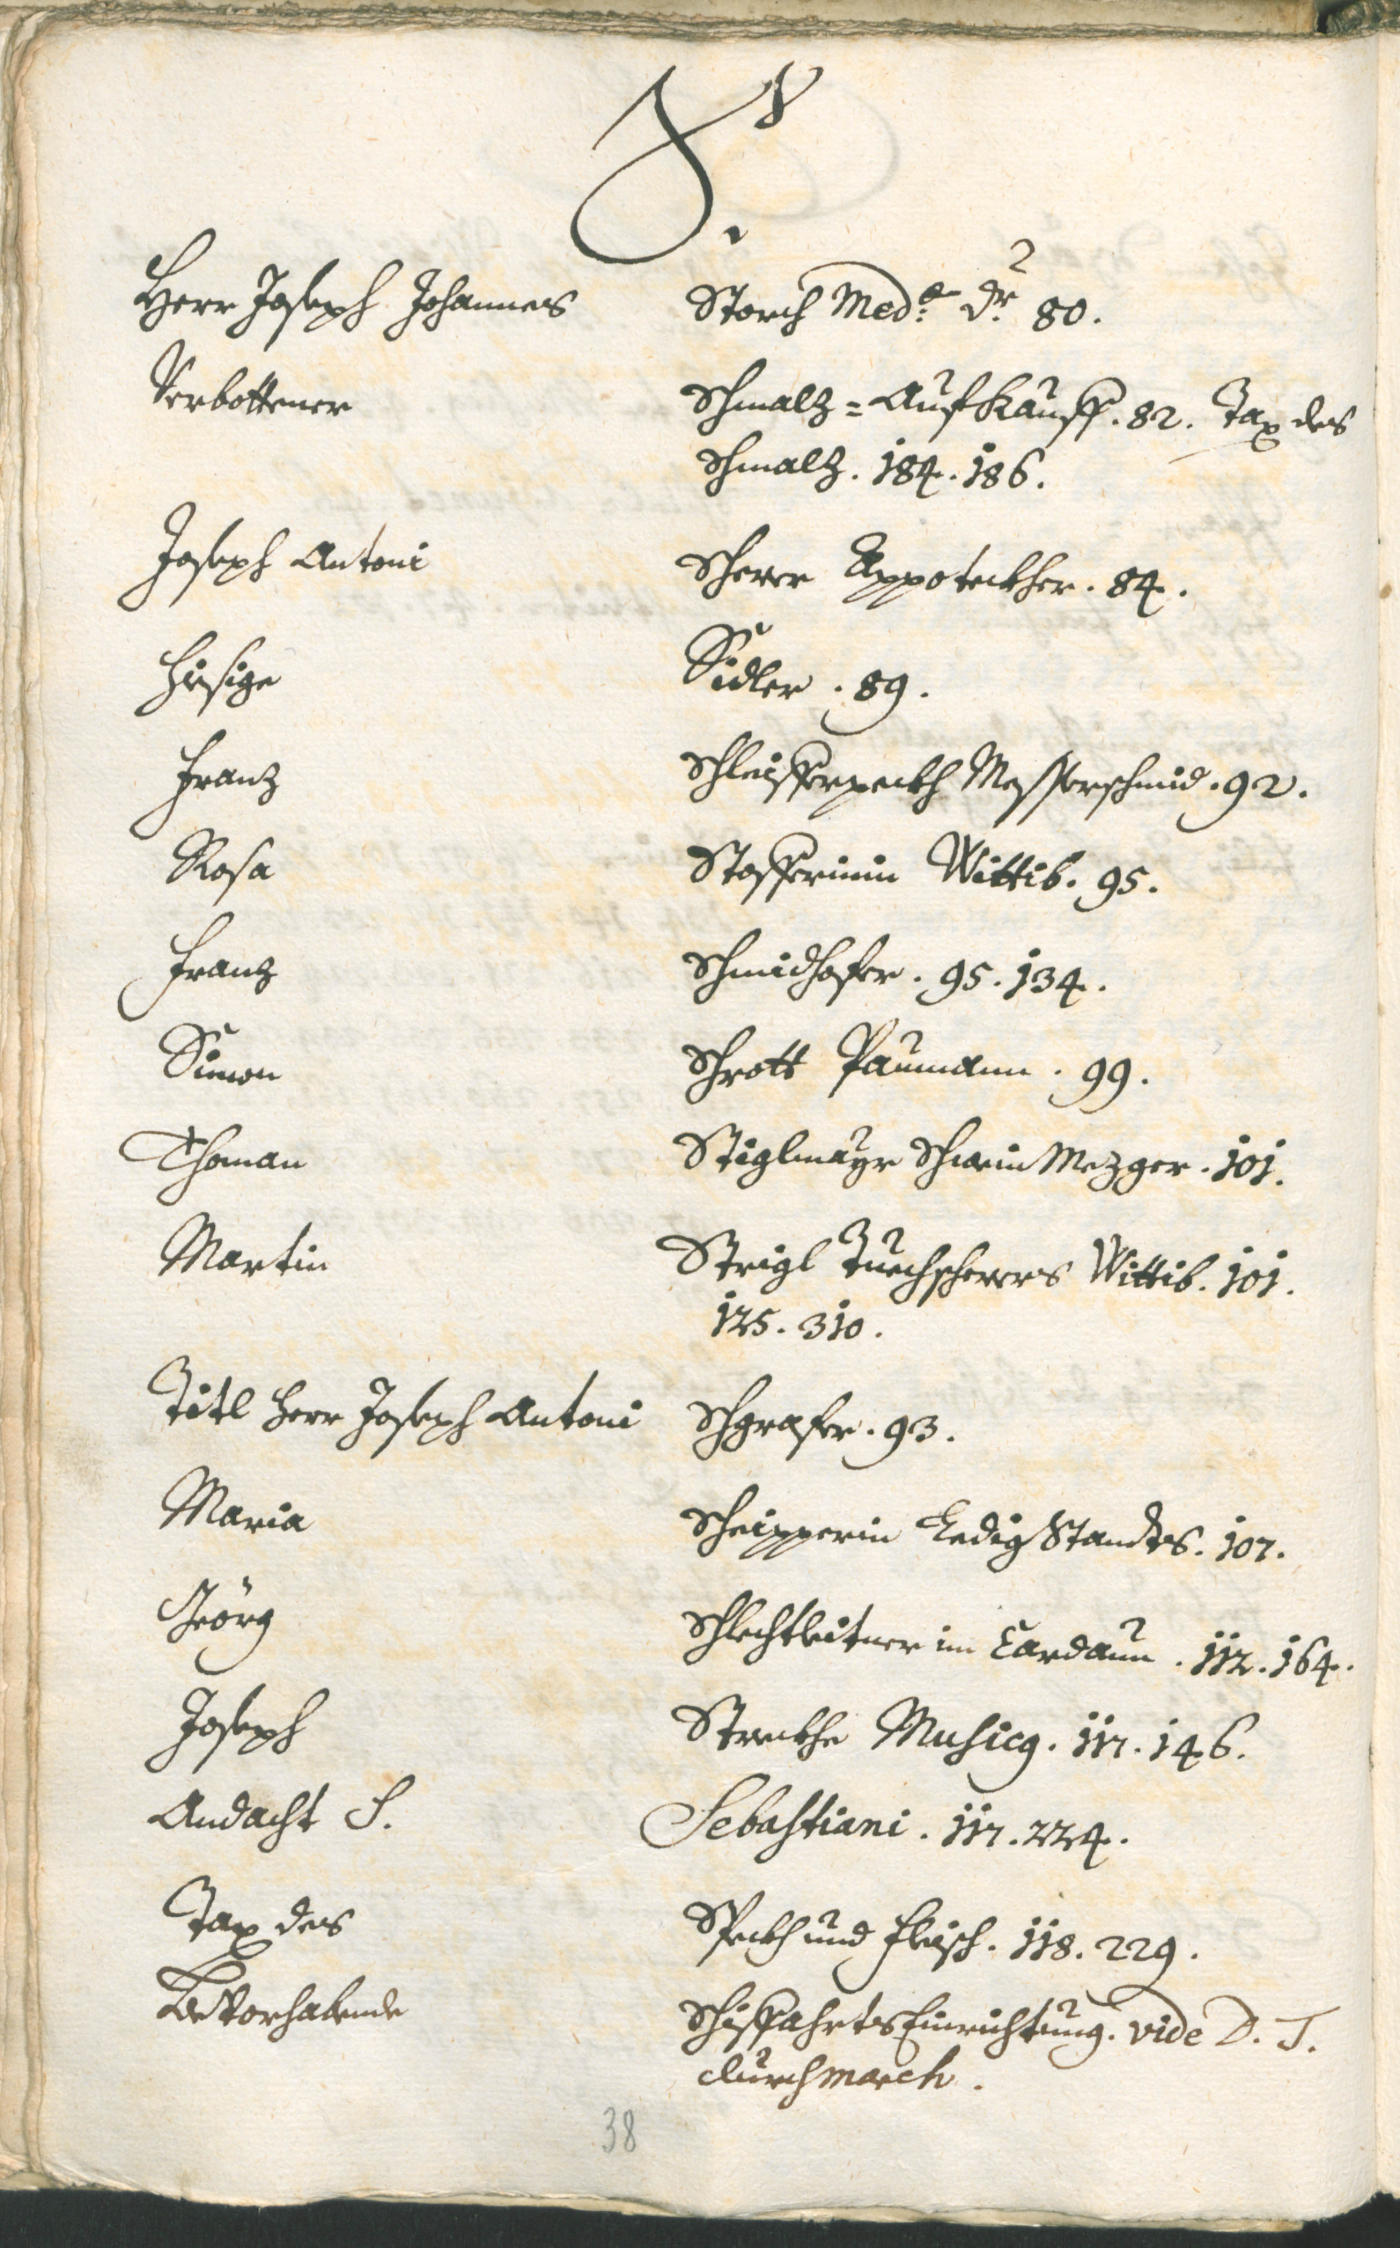 S.
Herr Joseph Johannes Storch Med:ae Dr: 80.
Verbottener Schmalz=Aufkauff. 82. Tax des
Schmalz. 184. 186.
Joseph Antoni Scherer Appoteckher. 84.
Hiesige Sidler. 89.
Franz Messerschmid. 92.
Rosa Wittib. 95.
Franz Schmidhofer. 95. 134.
Simon Schrott Paumann. 99.
Thoman Stiglmayr Schwein Mezger. 101.
Martin Strigl Tuechscherers Wittib. 101.
125. 310.
Titl Herr Joseph Antoni Schgrafer. 93.
Maria Ledig Standts. 107.
Geörg Schlechtleitner im Cardaun. 112. 164.
Joseph Musicq. 117. 146.
Andacht S. Sebastiani. 117. 224.
Tax des Speckh und Fleisch. 118. 229.
Bevorhabende Schiffahrts Einrichtung. vide D. T.
durchmarch.
38